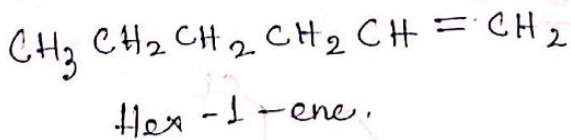 CH₃ CH₂ CH₂ CH₂ CH = CH₂
Hex - 1 - ene.